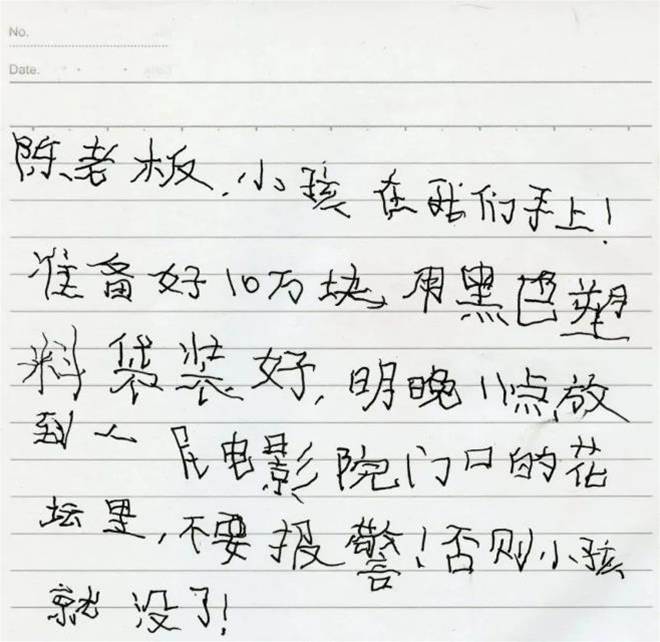 No.
Date.
陈老板,小孩在我们手上!
准备好10万块,用黑色塑
料袋装好,明晚11点,放
到人民电影院门口的花
坛里,不要报警!否则小孩
就没了!